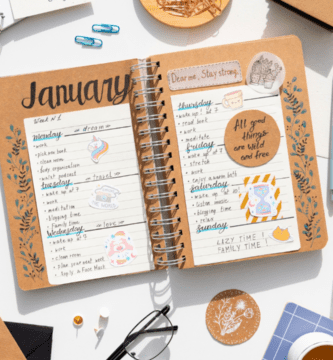 January
Week n°1
Monday - dream -
• work
• pick mom book
• clean room
• body organization
• watch podcast
Tuesday - travel -
• wake up at 7
• work
• meditation
• blogging time
• family time
Wednesday - love -
• wake up at 7
• work
• clean room
• plan your next week
• buy a Face Mask
Dear me, Stay strong.
Thursday
• wake up at 7
• read book
• work
• meditate
Friday
• wake up at 7
• work
• enjoy a warm bath
Saturday
• wake up at 7
• listen music
• blogging time
• relax
Sunday
LAZY TIME!
FAMILY TIME!
All good
things
are wild
and free